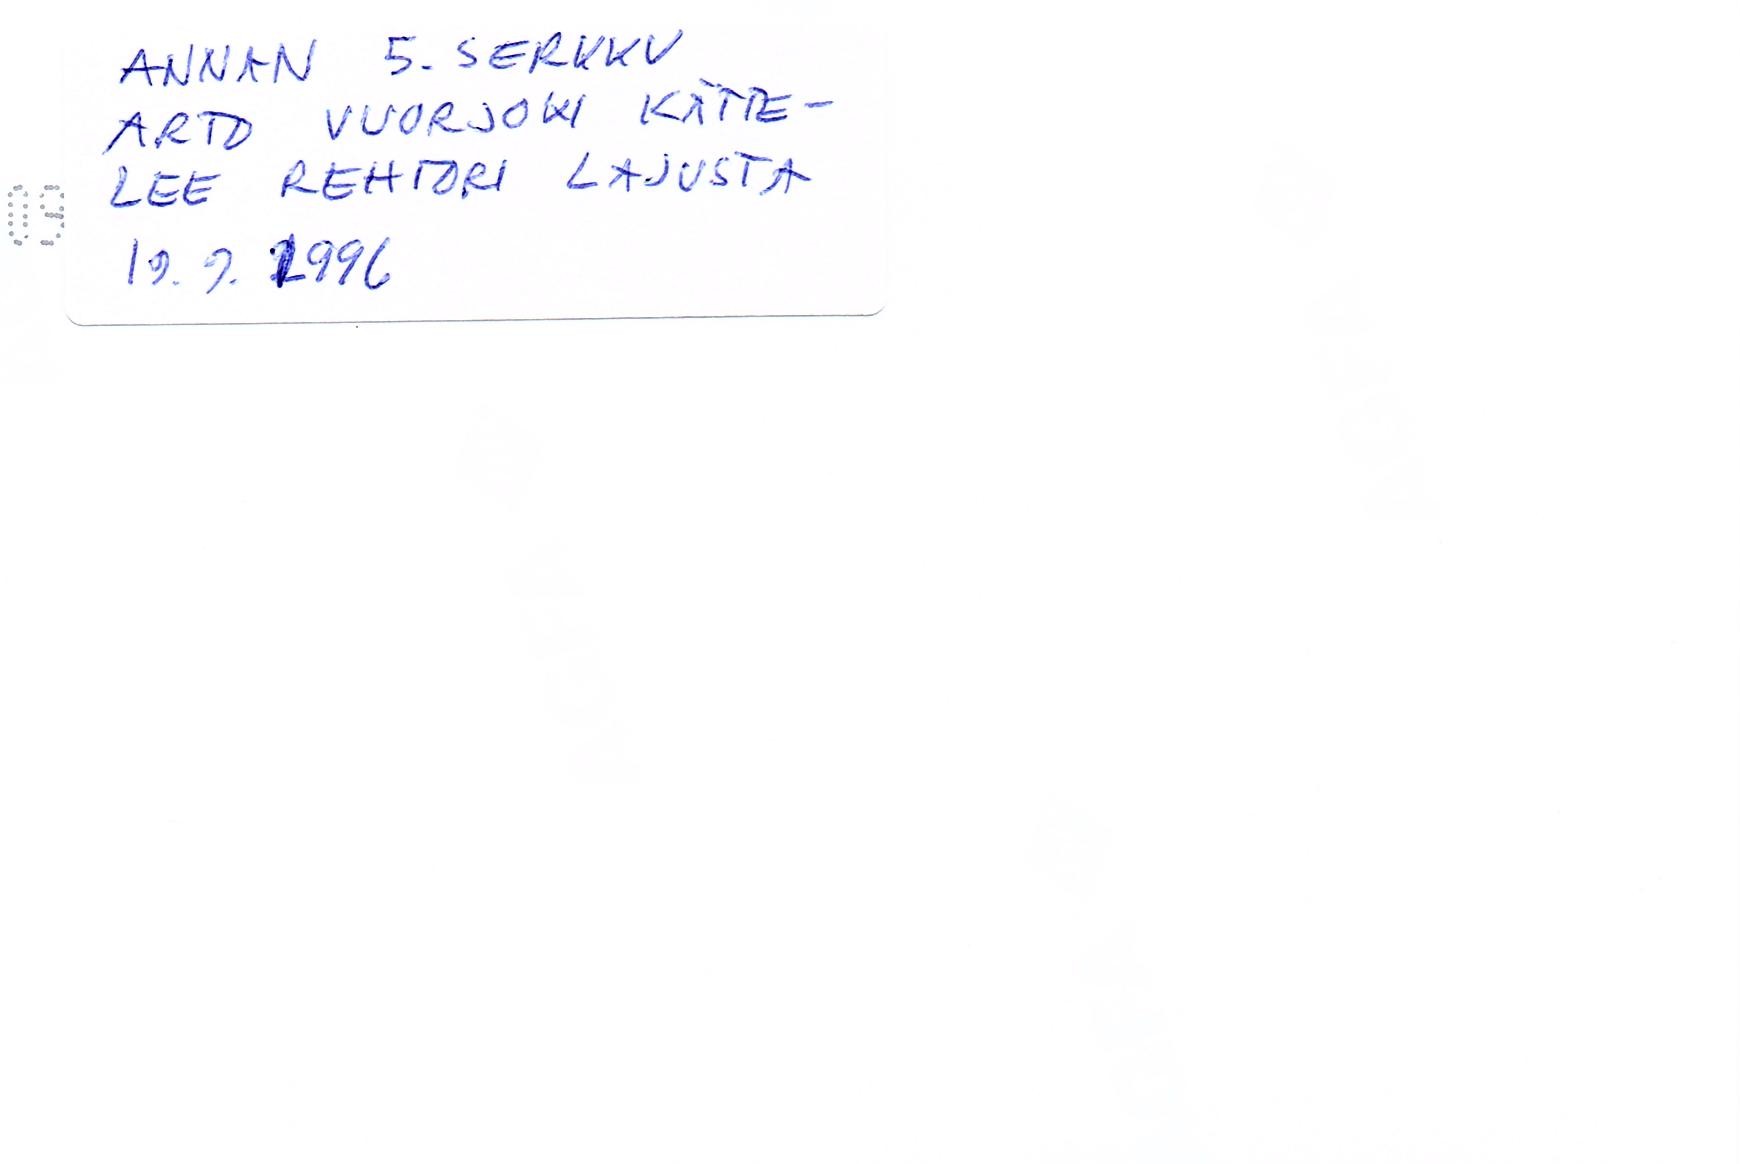 ANNAN 5. SERKKU
ARTO VUORJOKI KÄTTE-
LEE REHTORI LAJUSTA
19.9.1996